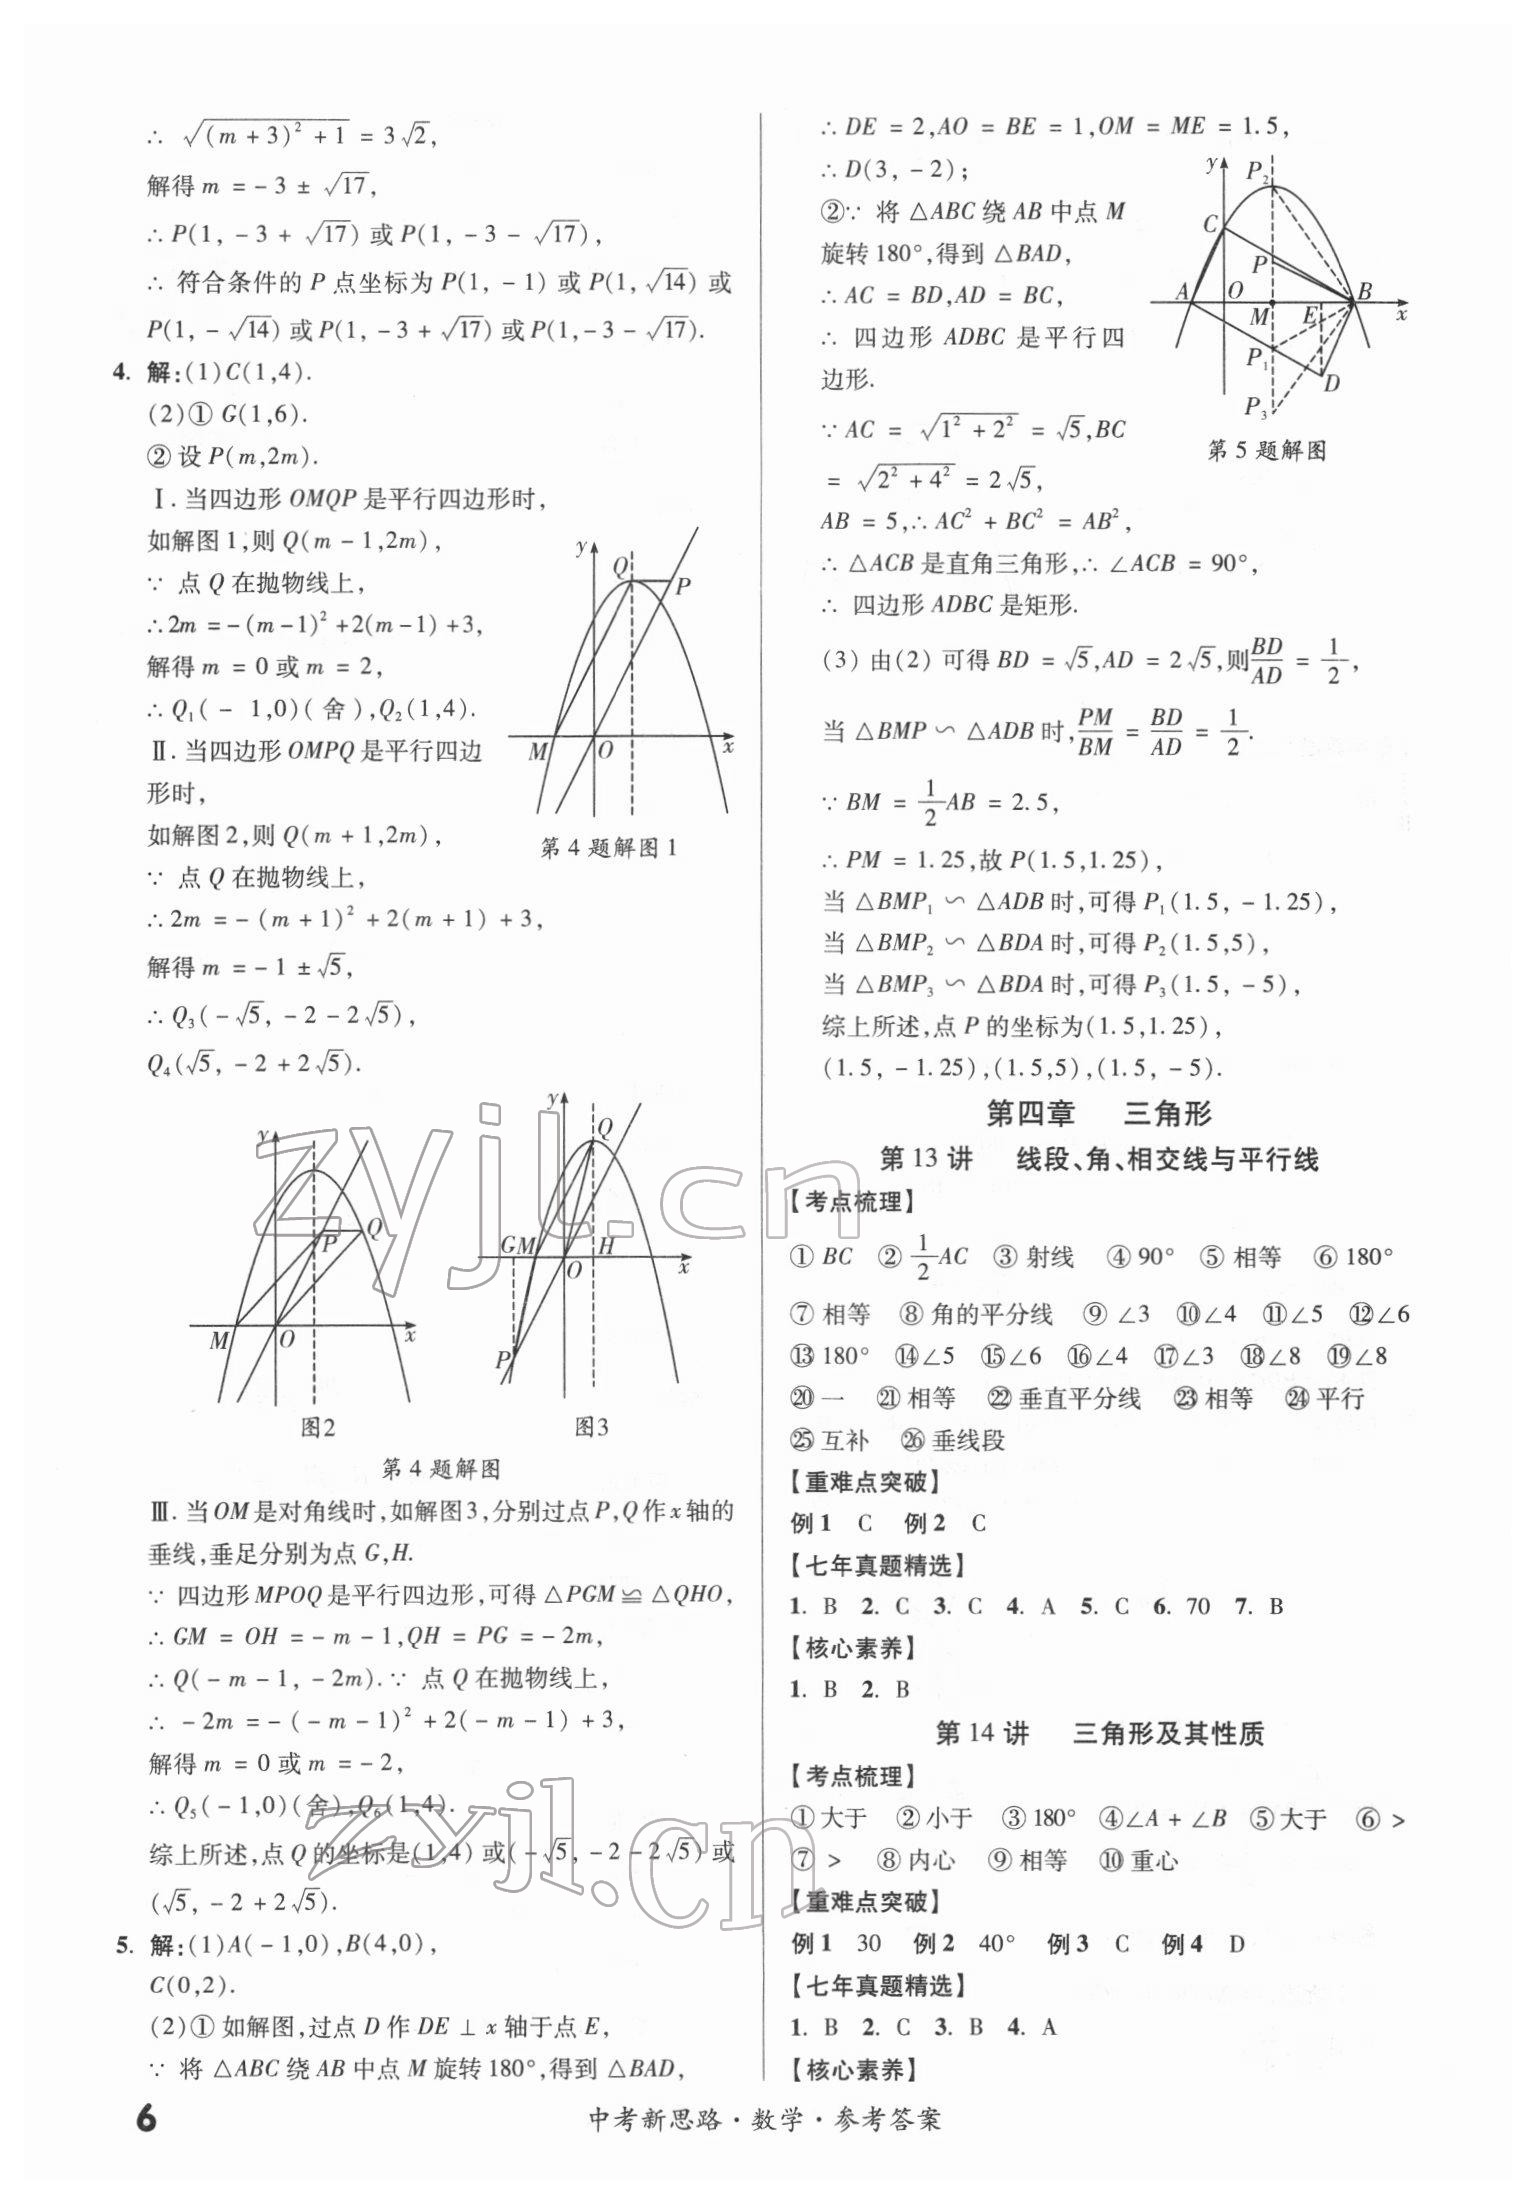 ∴ √((m + 3)² + 1) = 3√2,
解得 m = - 3 ± √17,
∴ P(1, - 3 + √17) 或 P(1, - 3 - √17),
∴ 符合条件的 P 点坐标为 P(1, - 1) 或 P(1, √14) 或
P(1, - √14) 或 P(1, - 3 + √17) 或 P(1, - 3 - √17).
4. 解:(1)C(1,4).
(2)① G(1,6).
② 设 P(m,2m).
Ⅰ. 当四边形 OMQP 是平行四边形时,
如解图 1,则 Q(m - 1,2m),
∵ 点 Q 在抛物线上,
∴2m = - (m - 1)² + 2(m - 1) + 3,
解得 m = 0 或 m = 2,
∴ Q₁( - 1,0)(舍),Q₂(1,4).
Ⅱ. 当四边形 OMPQ 是平行四边
形时,
如解图 2,则 Q(m + 1,2m),
∵ 点 Q 在抛物线上,
∴ 2m = - (m + 1)² + 2(m + 1) + 3,
解得 m = - 1 ± √5,
∴ Q₃( - √5, - 2 - 2√5),
Q₄(√5, - 2 + 2√5).
y Q P M O x
第 4 题解图 1
y P Q M O x
图2
y Q G M H O x P
图3
第 4 题解图
Ⅲ. 当 OM 是对角线时,如解图 3,分别过点 P,Q 作 x 轴的
垂线,垂足分别为点 G,H.
∵ 四边形 MPOQ 是平行四边形,可得 △PGM ≌ △QHO,
∴ GM = OH = - m - 1,QH = PG = - 2m,
∴ Q( - m - 1, - 2m). ∵ 点 Q 在抛物线上,
∴ - 2m = - ( - m - 1)² + 2( - m - 1) + 3,
解得 m = 0 或 m = - 2,
∴ Q₅( - 1,0)(舍),Q₆(1,4).
综上所述,点 Q 的坐标是(1,4) 或( - √5, - 2 - 2√5) 或
(√5, - 2 + 2√5).
5. 解:(1)A( - 1,0),B(4,0),
C(0,2).
(2)① 如解图,过点 D 作 DE ⊥ x 轴于点 E,
∵ 将 △ABC 绕 AB 中点 M 旋转 180°,得到 △BAD,
∴ DE = 2,AO = BE = 1,OM = ME = 1.5,
∴ D(3, - 2);
②∵ 将 △ABC 绕 AB 中点 M
旋转 180°,得到 △BAD,
∴ AC = BD,AD = BC,
∴ 四边形 ADBC 是平行四
边形.
∵ AC = √(1² + 2²) = √5,BC
= √(2² + 4²) = 2√5,
AB = 5,∴ AC² + BC² = AB²,
∴ △ACB 是直角三角形,∴ ∠ACB = 90°,
∴ 四边形 ADBC 是矩形.
y P₂ C P A O M E B x P₁ D P₃
第 5 题解图
(3) 由(2) 可得 BD = √5,AD = 2√5,则 BD/AD = 1/2,
当 △BMP ∽ △ADB 时, PM/BM = BD/AD = 1/2.
∵ BM = 1/2 AB = 2.5,
∴ PM = 1.25,故 P(1.5,1.25),
当 △BMP₁ ∽ △ADB 时,可得 P₁(1.5, - 1.25),
当 △BMP₂ ∽ △BDA 时,可得 P₂(1.5,5),
当 △BMP₃ ∽ △BDA 时,可得 P₃(1.5, - 5),
综上所述,点 P 的坐标为(1.5,1.25),
(1.5, - 1.25),(1.5,5),(1.5, - 5).
第四章 三角形
第 13 讲 线段、角、相交线与平行线
【考点梳理】
① BC ② 1/2 AC ③ 射线 ④ 90° ⑤ 相等 ⑥ 180°
⑦ 相等 ⑧ 角的平分线 ⑨ ∠3 ⑩ ∠4 ⑪ ∠5 ⑫ ∠6
⑬ 180° ⑭ ∠5 ⑮ ∠6 ⑯ ∠4 ⑰ ∠3 ⑱ ∠8 ⑲ ∠8
⑳ 一 ㉑ 相等 ㉒ 垂直平分线 ㉓ 相等 ㉔ 平行
㉕ 互补 ㉖ 垂线段
【重难点突破】
例 1 C 例 2 C
【七年真题精选】
1. B 2. C 3. C 4. A 5. C 6. 70 7. B
【核心素养】
1. B 2. B
第 14 讲 三角形及其性质
【考点梳理】
① 大于 ② 小于 ③ 180° ④ ∠A + ∠B ⑤ 大于 ⑥ >
⑦ > ⑧ 内心 ⑨ 相等 ⑩ 重心
【重难点突破】
例 1 30 例 2 40° 例 3 C 例 4 D
【七年真题精选】
1. B 2. C 3. B 4. A
【核心素养】
6
中考新思路 · 数学 · 参考答案
zyjl.cn
zyjl.cn